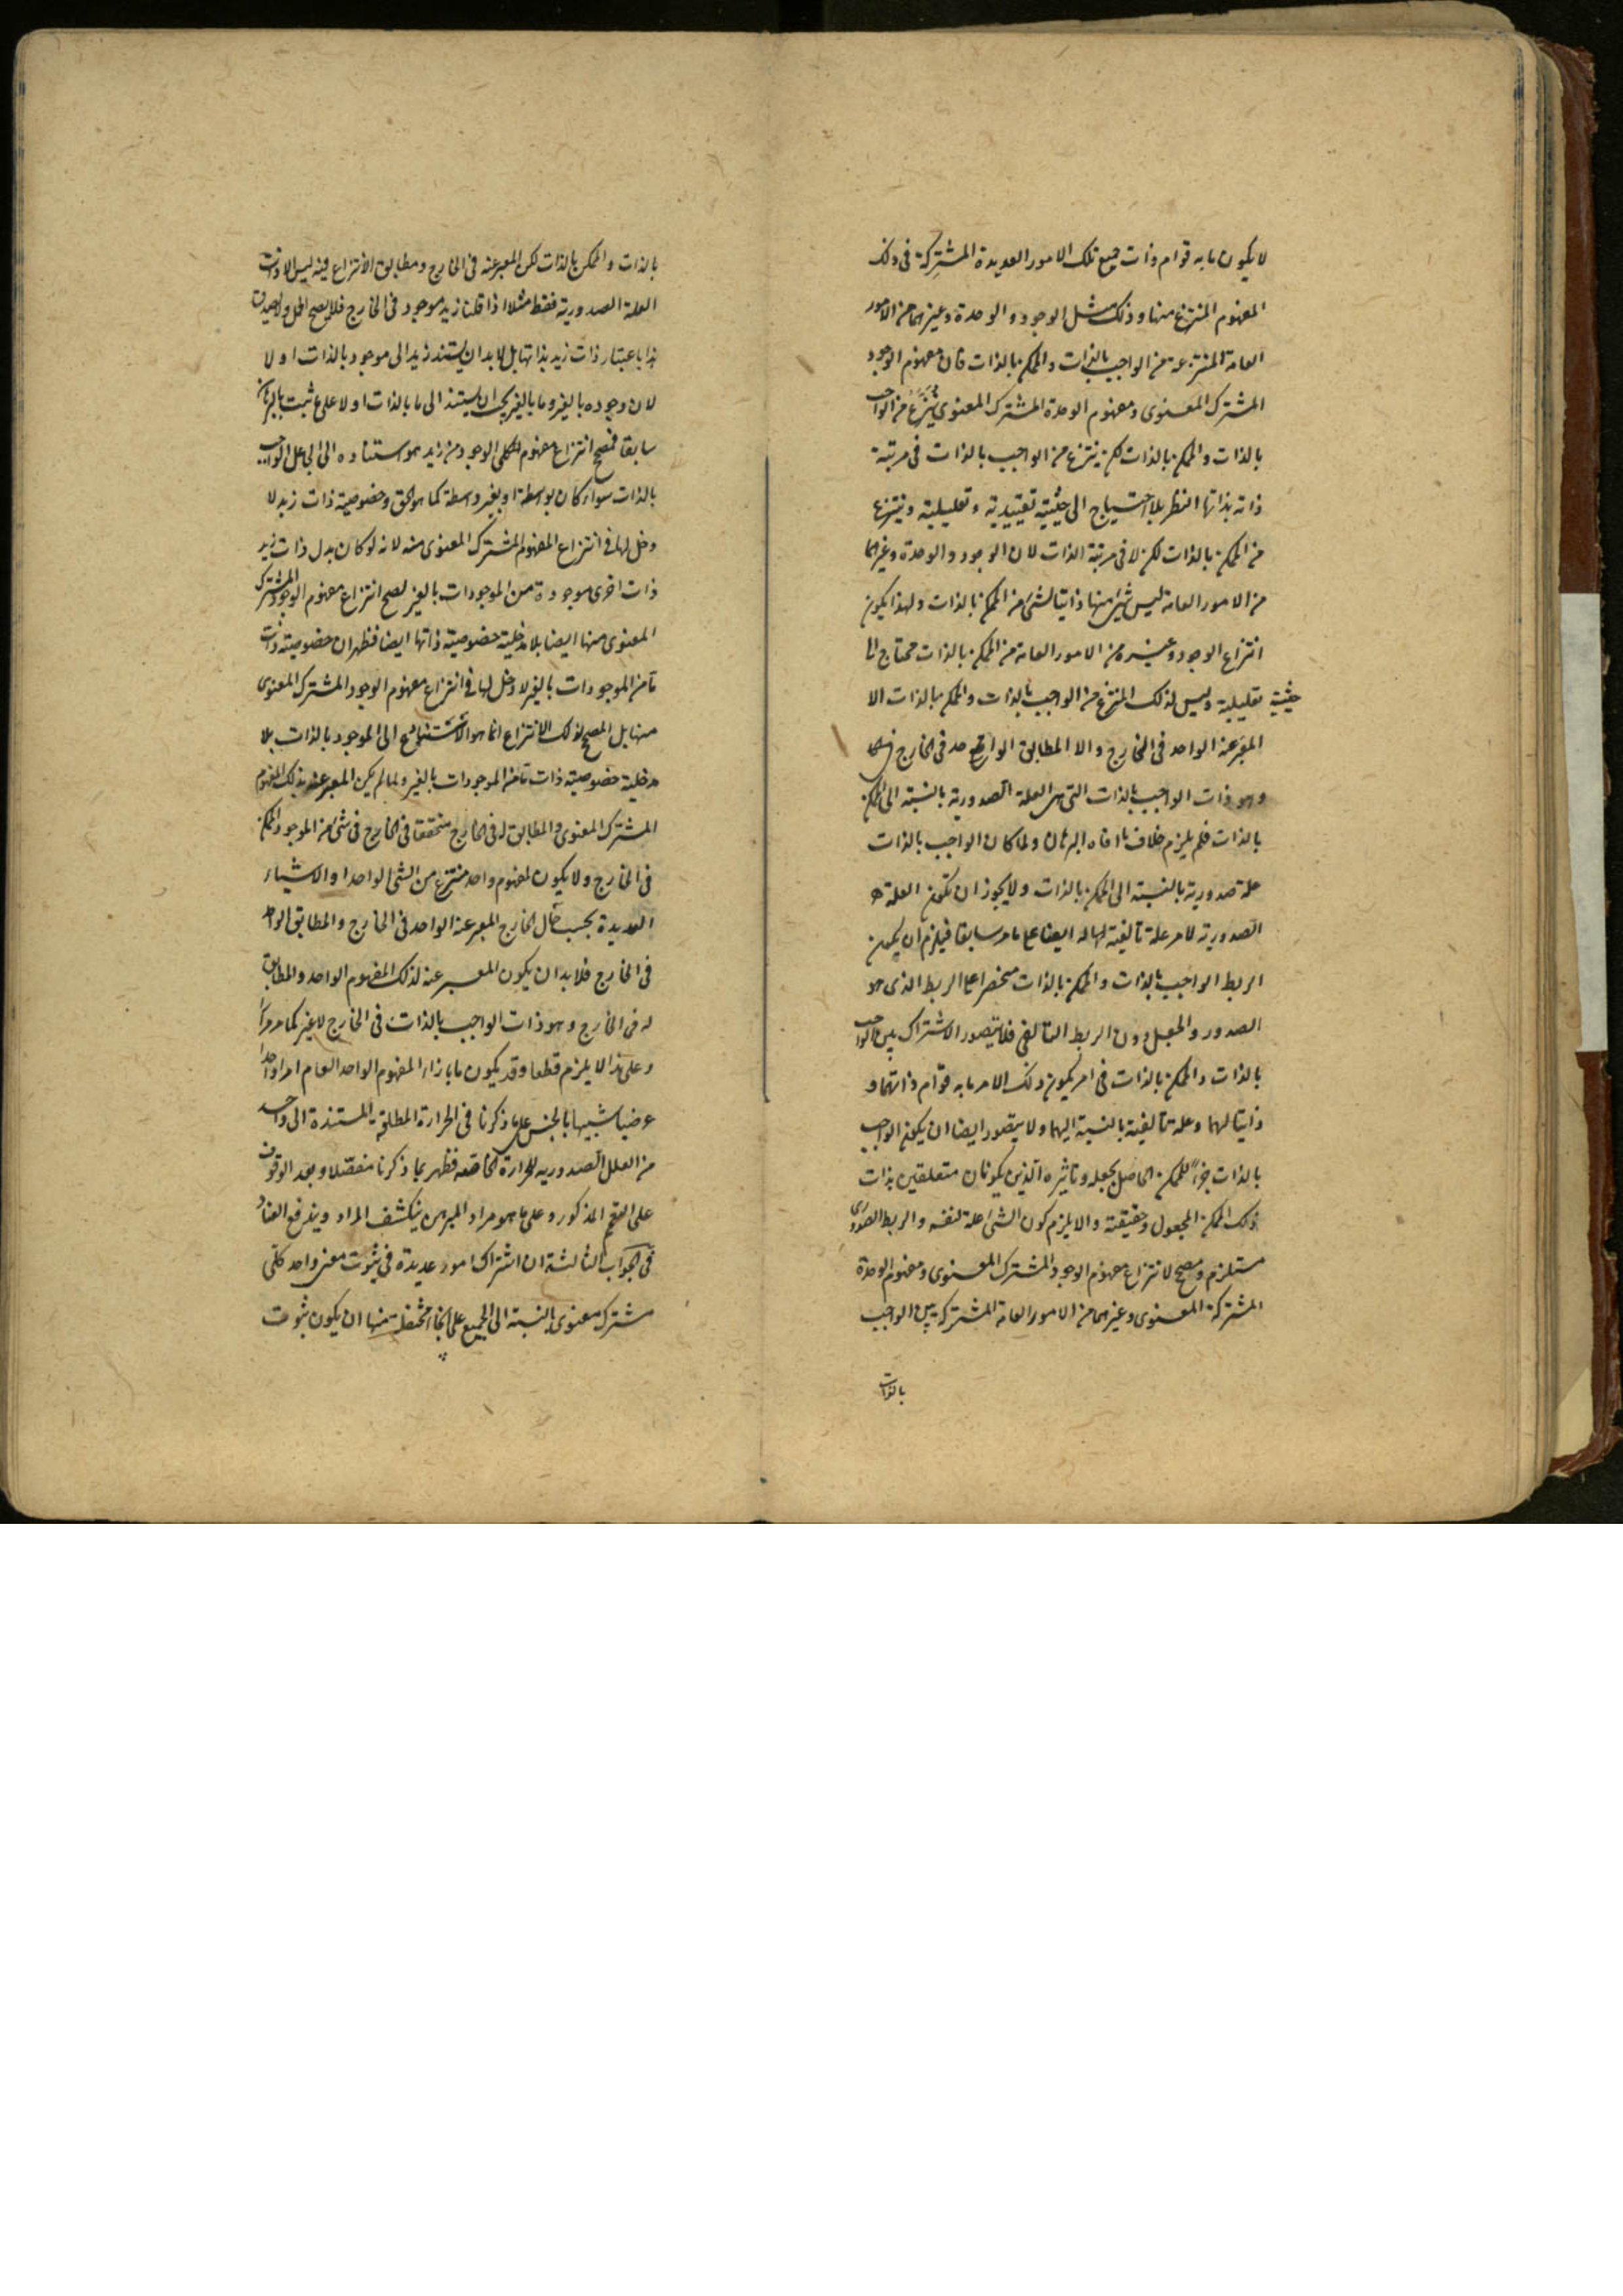 لا يكون ما به قوام ذات جميع تلك الامور العديدة المشتركة فى ذلك
المفهوم المنتزع منها وذلك مثل الوجود والوحدة وغيرهما من الامور
العامة المنتزعة من الواجب بالذات والممكن بالذات فان مفهوم الوجود
المشترك المعنوى ومفهوم الوحدة المشترك المعنوى ينتزع من الواجب
بالذات والممكن بالذات لكن ينتزع من الواجب بالذات فى مرتبة
ذاته بذاتها النظر بلا احتياج الى حيثية تقييدية وتعليلية وينتزع
من الممكن بالذات لكن لا فى مرتبة الذات لان الوجود والوحدة وغيرهما
من الامور العامة ليس شئ منها ذاتيا لشئ من الممكن بالذات ولهذا يكون
انتزاع الوجود وغيره من الامور العامة من الممكن بالذات محتاج الى
حيثية تعليلية وليس لذلك المنتزع من الواجب بالذات والممكن بالذات الا
المعبر عنه الواحد فى الخارج والا المطابق الواحد فى الخارج
وهو ذات الواجب بالذات التى هى العلة الصدورية بالنسبة الى الممكن
بالذات فلم يلزم خلاف ما افاه البرهان ولما كان الواجب بالذات
علة صدورية بالنسبة الى الممكن بالذات ولا يجوز ان تكون العلة
الصدورية لامر علة تأليفية لها له ايضا على ما مر سابقا فيلزم ان يكون
الربط الواجب بالذات والممكن بالذات منحصرا على الربط الذى هو
الصدور والجعل دون الربط التألفى فلا يتصور الاشتراك بين الواجب
بالذات والممكن بالذات فى امر يكون ذلك الامر ما به قوام ذاتهما و
ذاتيا لهما وعلة تأليفية بالنسبة اليهما ولا يتصور ايضا ان يكون الواجب
بالذات جزءا للممكن الحاصل بجعله وتاثيره الذين يكونان متعلقين بذات
ذلك الممكن المجعول وحقيقته والا يلزم كون الشئ علة لنفسه والربط الصدورى
مستلزم ومصحح لانتزاع مفهوم الوجود المشترك المعنوى ومفهوم الوحدة
المشتركة المعنوى وغيرهما من الامور العامة المشتركة بين الواجب
بالذات
بالذات والممكن بالذات لكن المعبر عنه فى الخارج ومطابق الانتزاع فيه ليس الا ذات
العلة الصدورية فقط مثلا اذا قلنا زيد موجود فى الخارج فلا يصح الحمل ولا يصدق
هذا باعتبار ذات زيد بذاتها بل لا بد ان يستند زيد الى موجود بالذات اولا
لان وجوده بالغير وما بالغير يجب ان يستند الى ما بالذات اولا على ما ثبت بالبرهان
سابقا فمصحح انتزاع مفهوم الكلى الوجود من زيد هو استناده الى الجاعل الواجب
بالذات سواء كان بواسطة او بغير واسطة كما هو الحق وخصوصية ذات زيد لا
دخل لها فى انتزاع المفهوم المشترك المعنوى منه لانه لو كان بدل ذات زيد
ذات اخرى موجودة من الموجودات بالغير لصح انتزاع مفهوم الوجود المشترك
المعنوى منها ايضا بلا مدخلية خصوصية ذاتها ايضا فظهر ان خصوصية ذات
ما من الموجودات بالغير لا دخل لها فى انتزاع مفهوم الوجود المشترك المعنوى
منها بل المصحح لذلك الانتزاع انما هو الاستناد الى الموجود بالذات بلا
مدخلية خصوصية ذات ما من الموجودات بالغير ولما لم يكن المعبر عنه بذلك المفهوم
المشترك المعنوى والمطابق له فى الخارج متحققا فى الخارج فى شئ من الموجود الممكن
فى الخارج ولا يكون لمفهوم واحد منتزع من الشئ الواحد او الاشياء
العديدة بحسب حال الخارج المعبر عنه الواحد فى الخارج والمطابق الواحد
فى الخارج فلا بد ان يكون المعبر عنه لذلك المفهوم الواحد والمطابق
له فى الخارج وهو ذات الواجب بالذات فى الخارج لا غير كما مر مرارا
وعلى هذا لا يلزم قطعا وقد يكون ما بازاء المفهوم الواحد العام امرا واحدا
عرضيا شبيها بالجنس على ما ذكرنا فى الحرارة المطلقة المستندة الى واحد
من العلل الصدورية للحرارة الخاصة فظهر بما ذكرنا مفصلا وبعد الوقوف
على الفتح المذكور وعلى ما هو مراد المبرهن ينكشف المراد ويندفع العناد
فى الجواب الثالثة ان اشتراك امور عديدة فى ثبوت معنى واحد كلى
مشترك معنوى بالنسبة الى الجميع على انحاء مختلفة منها ان يكون ثبوت